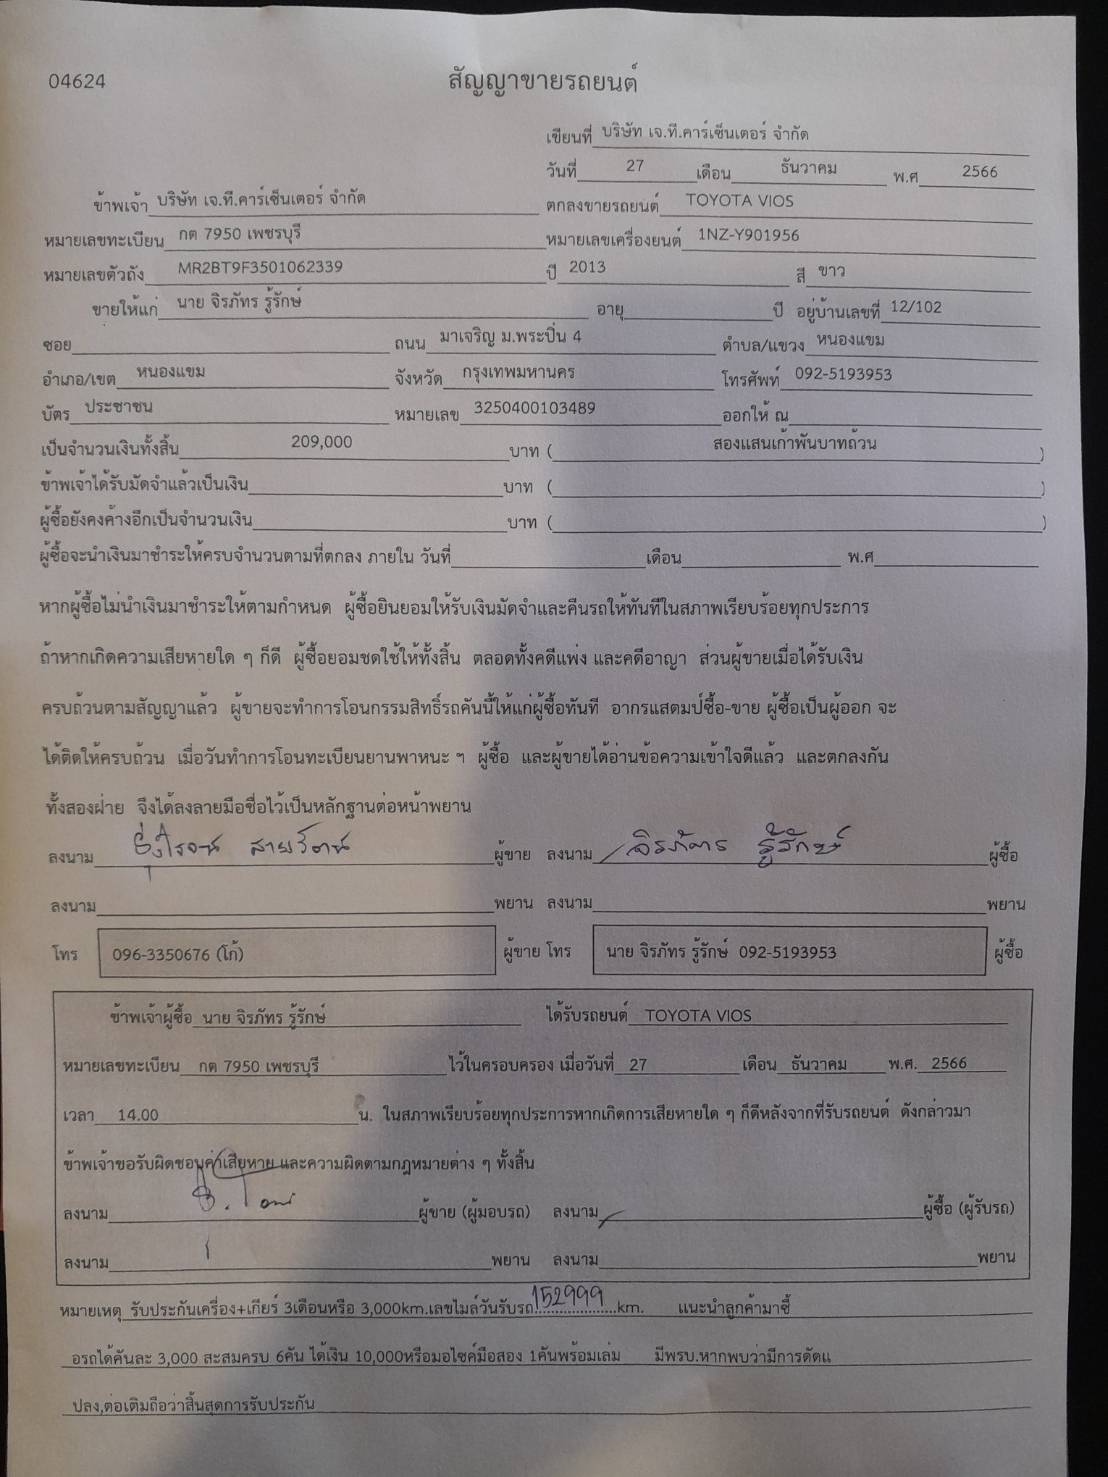 04624
สัญญาขายรถยนต์
เขียนที่ บริษัท เจ.ที.คาร์เซ็นเตอร์ จำกัด
วันที่ 27 เดือน ธันวาคม พ.ศ 2566
ข้าพเจ้า บริษัท เจ.ที.คาร์เซ็นเตอร์ จำกัด ตกลงขายรถยนต์ TOYOTA VIOS
หมายเลขทะเบียน กต 7950 เพชรบุรี หมายเลขเครื่องยนต์ 1NZ-Y901956
หมายเลขตัวถัง MR2BT9F3501062339 ปี 2013 สี ขาว
ขายให้แก่ นาย จิรภัทร รู้รักษ์ อายุ ปี อยู่บ้านเลขที่ 12/102
ซอย ถนน มาเจริญ ม.พระปิ่น 4 ตำบล/แขวง หนองแขม
อำเภอ/เขต หนองแขม จังหวัด กรุงเทพมหานคร โทรศัพท์ 092-5193953
บัตร ประชาชน หมายเลข 3250400103489 ออกให้ ณ
เป็นจำนวนเงินทั้งสิ้น 209,000 บาท ( สองแสนเก้าพันบาทถ้วน )
ข้าพเจ้าได้รับมัดจำแล้วเป็นเงิน บาท ( )
ผู้ซื้อยังคงค้างอีกเป็นจำนวนเงิน บาท ( )
ผู้ซื้อจะนำเงินมาชำระให้ครบจำนวนตามที่ตกลง ภายใน วันที่ เดือน พ.ศ
หากผู้ซื้อไม่นำเงินมาชำระให้ตามกำหนด ผู้ซื้อยินยอมให้รับเงินมัดจำและคืนรถให้ทันทีในสภาพเรียบร้อยทุกประการ
ถ้าหากเกิดความเสียหายใด ๆ ก็ดี ผู้ซื้อยอมชดใช้ให้ทั้งสิ้น ตลอดทั้งคดีแพ่ง และคดีอาญา ส่วนผู้ขายเมื่อได้รับเงิน
ครบถ้วนตามสัญญาแล้ว ผู้ขายจะทำการโอนกรรมสิทธิ์รถคันนี้ให้แก่ผู้ซื้อทันที อากรแสตมป์ซื้อ-ขาย ผู้ซื้อเป็นผู้ออก จะ
ได้ติดให้ครบถ้วน เมื่อวันทำการโอนทะเบียนยานพาหนะ ฯ ผู้ซื้อ และผู้ขายได้อ่านข้อความเข้าใจดีแล้ว และตกลงกัน
ทั้งสองฝ่าย จึงได้ลงลายมือชื่อไว้เป็นหลักฐานต่อหน้าพยาน
ลงนาม ผู้ขาย ลงนาม จิรภัทร รู้รักษ์ ผู้ซื้อ
ลงนาม พยาน ลงนาม พยาน
โทร 096-3350676 (โก้) ผู้ขาย โทร นาย จิรภัทร รู้รักษ์ 092-5193953 ผู้ซื้อ
ข้าพเจ้าผู้ซื้อ นาย จิรภัทร รู้รักษ์ ได้รับรถยนต์ TOYOTA VIOS
หมายเลขทะเบียน กต 7950 เพชรบุรี ไว้ในครอบครอง เมื่อวันที่ 27 เดือน ธันวาคม พ.ศ. 2566
เวลา 14.00 น. ในสภาพเรียบร้อยทุกประการหากเกิดการเสียหายใด ๆ ก็ดีหลังจากที่รับรถยนต์ ดังกล่าวมา
ข้าพเจ้าขอรับผิดชอบค่าเสียหาย และความผิดตามกฎหมายต่าง ๆ ทั้งสิ้น
ลงนาม ผู้ขาย (ผู้มอบรถ) ลงนาม ผู้ซื้อ (ผู้รับรถ)
ลงนาม พยาน ลงนาม พยาน
หมายเหตุ รับประกันเครื่อง+เกียร์ 3เดือนหรือ 3,000km.เลขไมล์วันรับรถ 152999 km. แนะนำลูกค้ามาซื้
อรถได้คันละ 3,000 สะสมครบ 6คัน ได้เงิน 10,000หรือมอไซค์มือสอง 1คันพร้อมเล่ม มีพรบ.หากพบว่ามีการดัดแ
ปลง,ต่อเติมถือว่าสิ้นสุดการรับประกัน